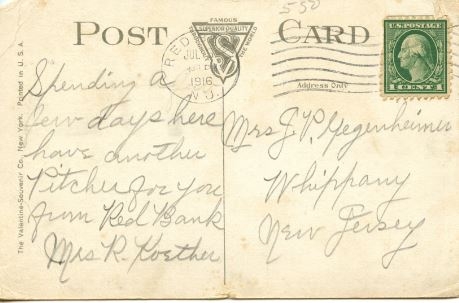 550
POST CARD
FAMOUS
SUPERIOR QUALITY
THE WORLD
RED
JUL
1916
N.J.
U.S. POSTAGE
1 CENT 1
Address Only
The Valentine-Souvenir Co., New York. Printed in U. S. A.
Spending a
few days here
have another
Pitcher for you
from Red Bank
Mrs R. Koether
Mrs J. P. Gegenheimer
Whippany
New Jersey